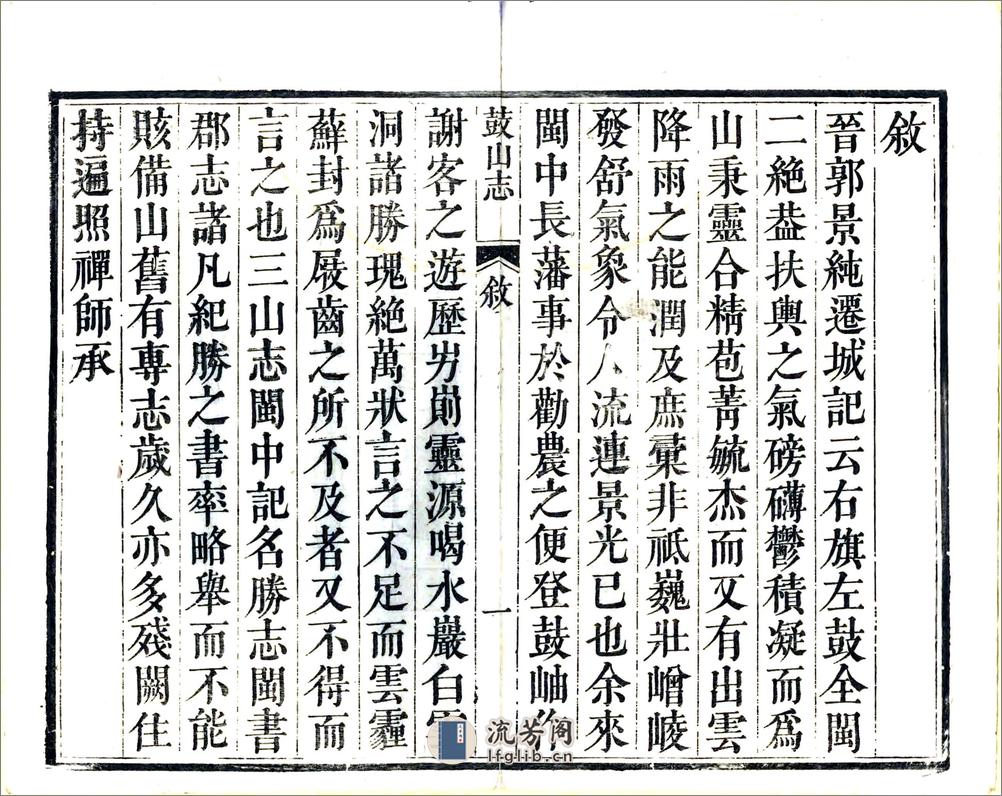 敘
晉郭景純遷城記云右旗左鼓全閩
二絶葢扶輿之氣磅礡鬱積凝而爲
山秉靈合精苞菁毓杰而又有出雲
降雨之能潤及庶彙非祇巍壯嶒崚
發舒氣象令人流連景光已也余來
閩中長藩事於勸農之便登鼓岫
鼓山志
敘
一
謝客之遊歷屴崱靈源喝水巖白雲
洞諸勝瑰絶萬狀言之不足而雲霾
蘚封爲屐齒之所不及者又不得而
言之也三山志閩中記名勝志閩書
郡志諸凡紀勝之書率略舉而不能
賅備山舊有專志歲久亦多殘闕住
持遍照禪師承
流芳阁
lfglib.cn